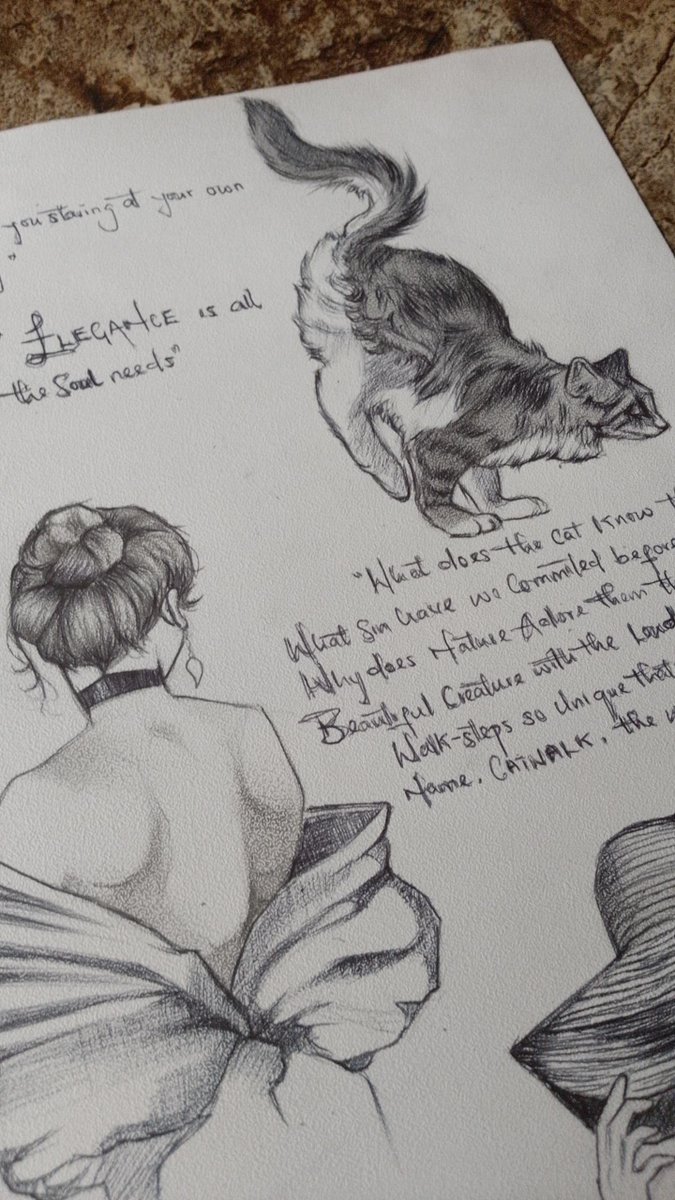 you staring at your own
"
ELEGANCE is all
the Soul needs"
"What does the cat know
What Sin have we Commited before
Why does Nature Adore them
Beautiful Creature with the
Walk-steps so Unique that
Name. CATWALK. the